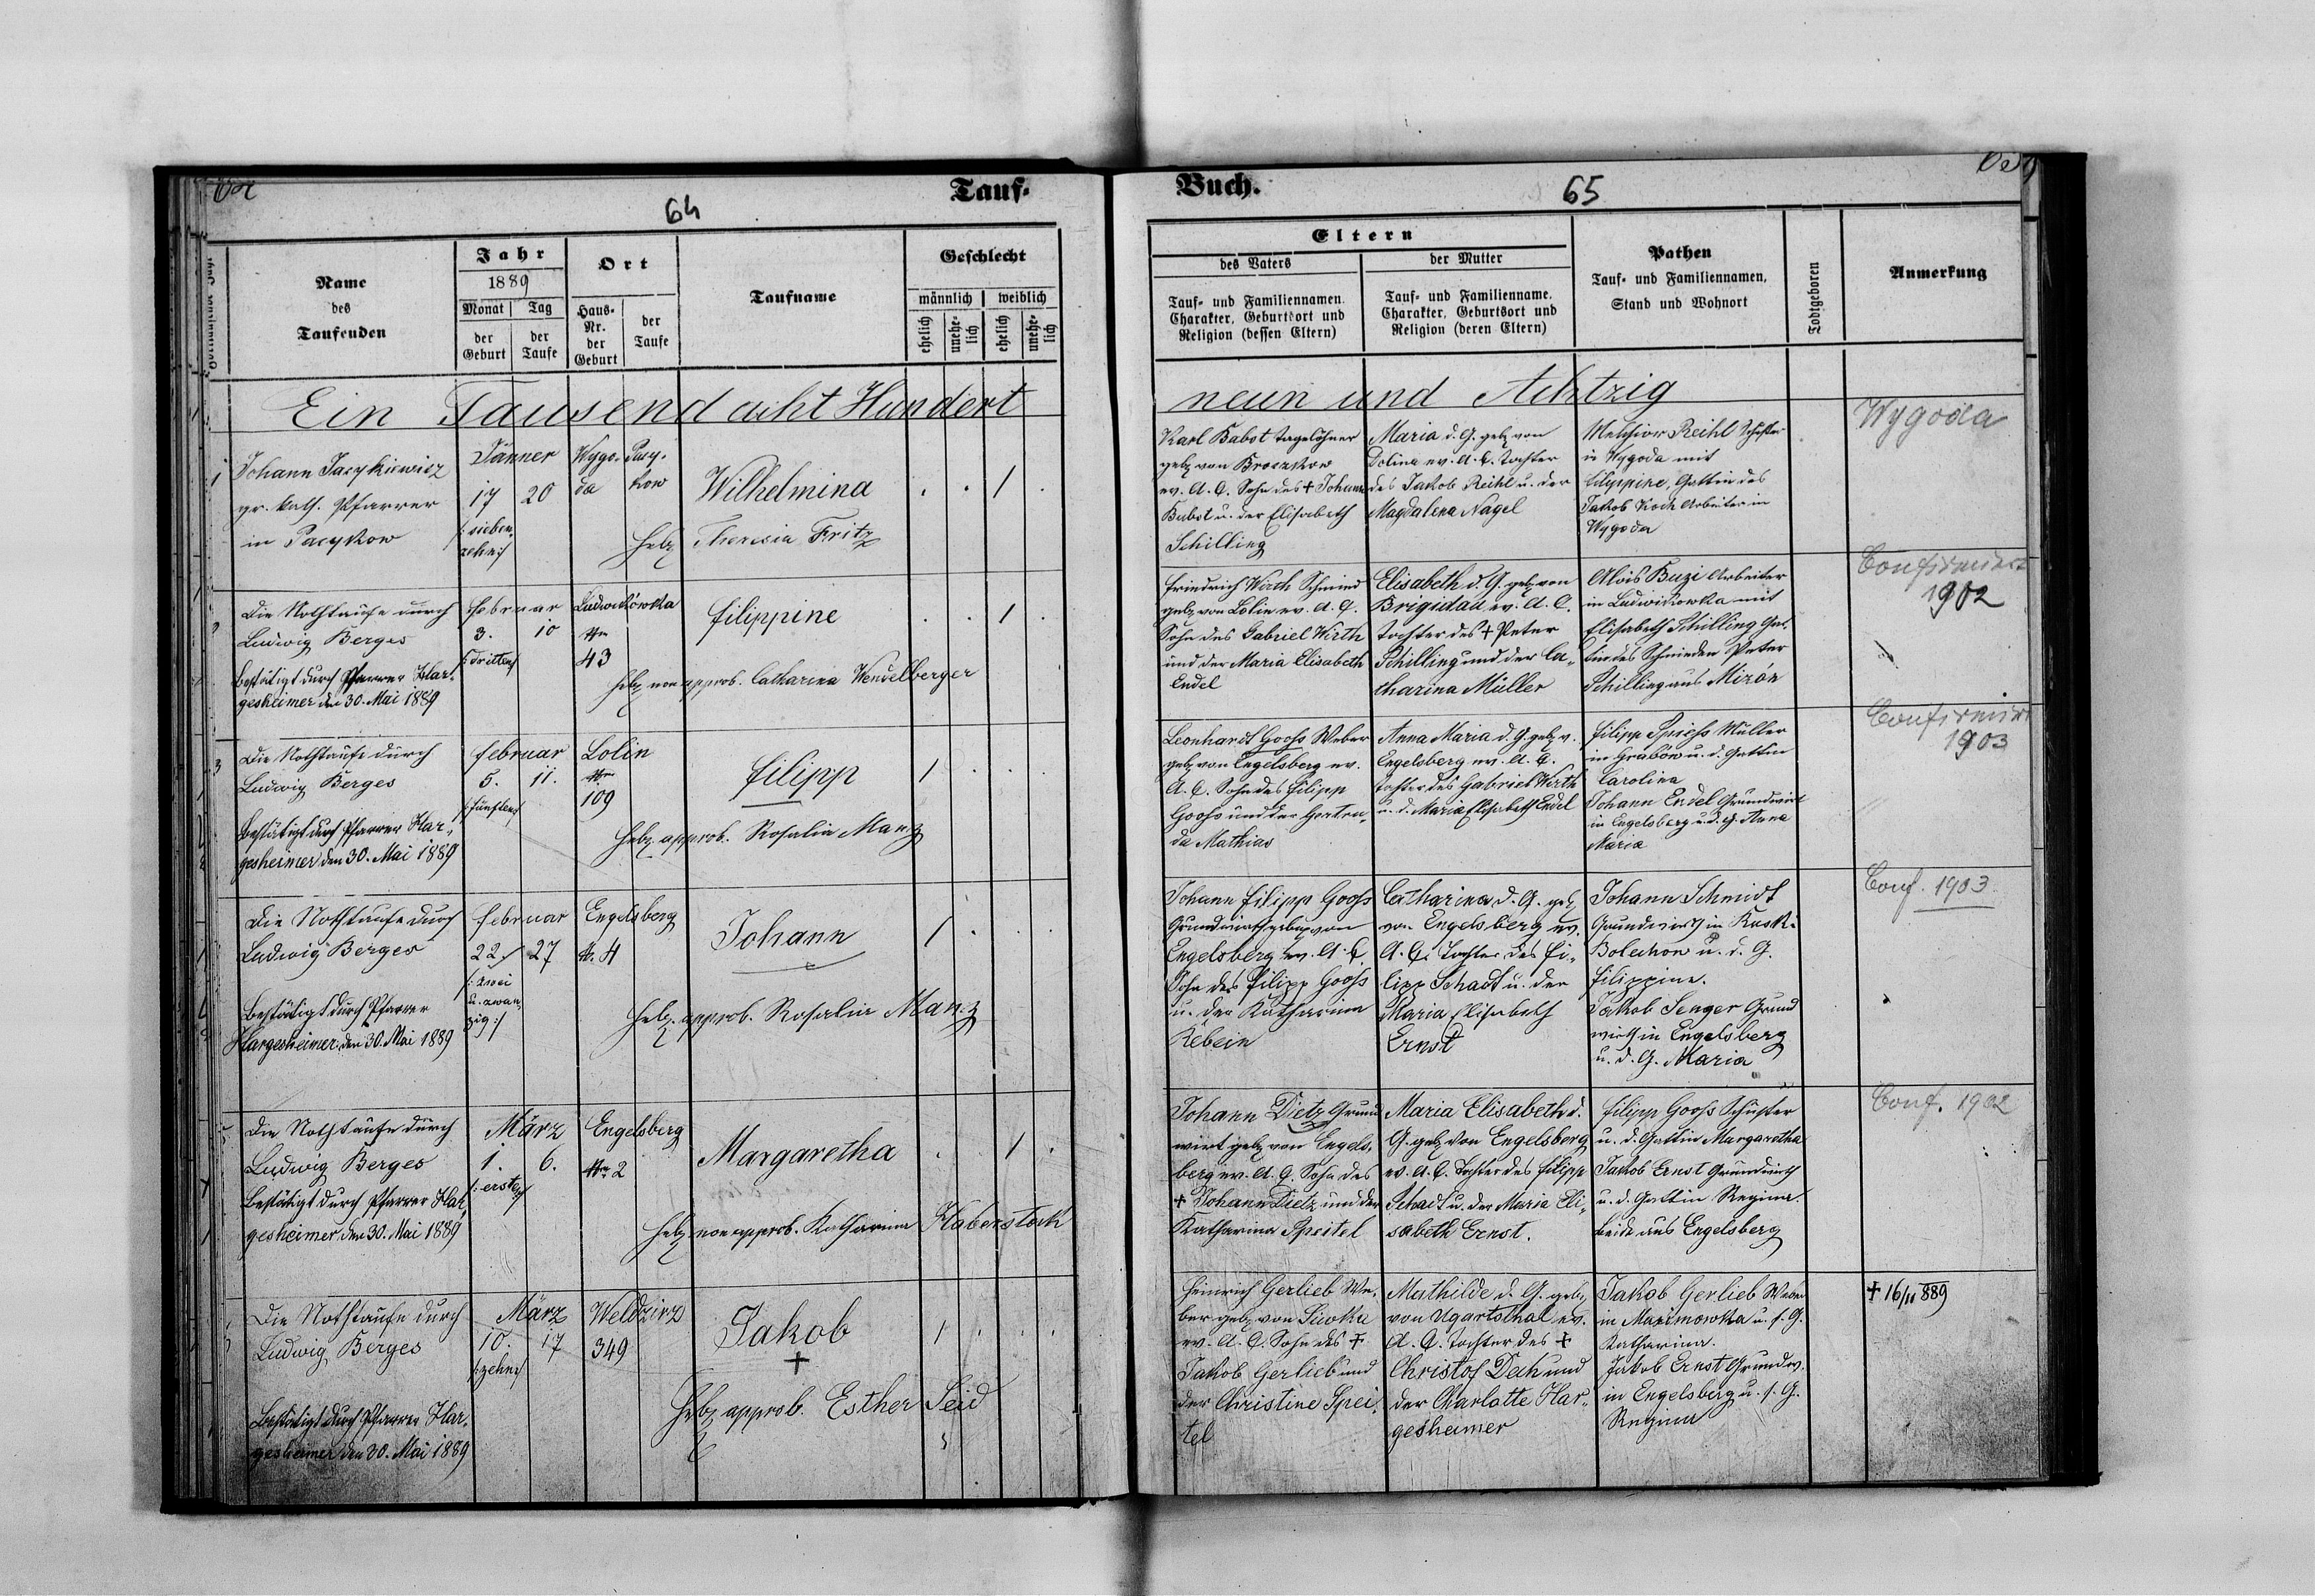 64
Tauf-
Jahr
1889
Ort
Geschlecht
Name
des
Taufenden
Monat
Tag
der
Geburt
der
Taufe
Haus-
Nr.
der
Geburt
der
Taufe
Taufname
männlich
weiblich
ehelich
unehe-
lich
ehelich
unehe-
lich
Ein Tausend acht Hundert
1
Johann Jacykiewicz
gr. kath. Pfarrer
in Pacykow
Jänner
17 20
/: sieben
zehn :/
Wygo-
da
Pacy-
kow
Wilhelmina
Hebz Theresia Fritz
Die Nothtaufe durch
Ludwig Berges
Bestätigt durch Pfarrer Har-
gesheimer den 30. Mai 1889
Februar
3. 10
/: dritten :/
Ludwikówka
Nr
43
Filippine
Hebz non approb. Catharina Wendelberger
3
Die Nothtaufe durch
Ludwig Berges
Bestätigt durch Pfarrer Har-
gesheimer den 30. Mai 1889
Februar
5. 11.
/: fünften :/
Lolin
Nr
109
Filipp
Hebz approb. Rosalia Manz
Die Nothtaufe durch
Ludwig Berges
Bestätigt durch Pfarrer
Hargesheimer den 30. Mai 1889
Februar
22. 27
/: zwei
u. zwan
zig :/
Engelsberg
Nr. 4
Johann
Hebz. approb. Rosalia Manz
5
Die Nothtaufe durch
Ludwig Berges
Bestätigt durch Pfarrer Har-
gesheimer den 30. Mai 1889
März
1. 6.
/: ersten :/
Engelsberg
Nr 2
Margaretha
Hebz. non approb. Katharina Haberstock
Die Nothtaufe durch
Ludwig Berges
Bestätigt durch Pfarrer Har-
gesheimer den 30. Mai 1889
März
10. 17
/: zehn :/
Weldzirz
349
Jakob
+
Hebz approb. Esther Seid
Buch.
65
Eltern
des Vaters
der Mutter
Tauf- und Familiennamen,
Charakter, Geburtsort und
Religion (dessen Eltern)
Tauf- und Familienname,
Charakter, Geburtsort und
Religion (deren Eltern)
Pathen
Tauf- und Familiennamen,
Stand und Wohnort
Todtgeboren
Anmerkung
neun und Achtzig
Karl Babst Tagelöhner
geb von Broczkow
ev. A. C. Sohn des + Johann
Babst u. der Elisabeth
Schilling
Maria d. G. geb von
Dolina ev. A. C. Tochter
des Jakob Reihl u. der
Magdalena Nagel
Melchior Reihl Schuster
in Wygoda mit
Filippine, Gattin des
Jakob Koch Arbeiter in
Wygoda
Wygoda
Friedrich Wirth Schmied
geb von Lolin ev. A. C.
Sohn des Gabriel Wirth
und der Maria Elisabeth
Endel
Elisabeth d. G. geb von
Brigidau, ev. A. C.
Tochter des + Peter
Schilling und der Ca-
tharina Müller
Alois Buzi Arbeiter
in Ludwikowka mit
Elisabeth Schilling Gat-
tin des Schmieden Peter
Schilling aus Mizón
Confirmirt
1902
Leonhardt Gooß Weber
geb von Engelsberg ev.
A. C. Sohn des Filipp
Gooß und der Gertru-
da Mathias
Anna Maria d. G. geb v.
Engelsberg ev. A. C.
Tochter des Gabriel Wirth
u. d. Maria Elisabeth Endel
Filipp Spieß Müller
in Grabow u. d. Gattin
Carolina
Johann Endel Grundwirt
in Engelsberg u. d. G. Anna
Maria
Confirmirt
1903
Johann Filipp Gooß
Grundwirth geb von
Engelsberg ev. A. C.
Sohn des Filipp Gooß
u. der Katharina
Rebein
Catharina d. G. geb
von Engelsberg ev.
A. C. Tochter des Fi-
lipp Schadt u. der
Maria Elisabeth
Ernst
Johann Schmidt
Grundwirth in Ruski-
Bolechow u. d. G.
Filippine.
Jakob Senger Grund
wirth in Engelsberg
u. d. G. Maria
Conf. 1903.
Johann Dietz Grund
wirt geb von Engels-
berg ev. A. C. Sohn des
+ Johann Dietz und der
Katharina Speitel
Maria Elisabeth d.
G. geb von Engelsberg
ev. A. C. Tochter des Filipp
Schadt u. der Maria Eli-
sabeth Ernst.
Filipp Gooß Schuster
u. d. Gattin Margaretha
Jakob Ernst Grundwirth
u. d. Gattin Regina.
beide aus Engelsberg
Conf. 1902
Heinrich Gerlieb We-
ber geb von Siwka
ev. A. C. Sohn des +
Jakob Gerlieb und
der Christine Spei-
tel
Mathilde d. G. geb
von Ugartsthal ev.
A. C. Tochter des +
Christof Dech und
der Charlotte Har-
gesheimer
Jakob Gerlieb Weber
in Maximowka u. s. G.
Katharina.
Jakob Ernst Grundw.
in Engelsberg u. s. G.
Regina
+ 16/11 889